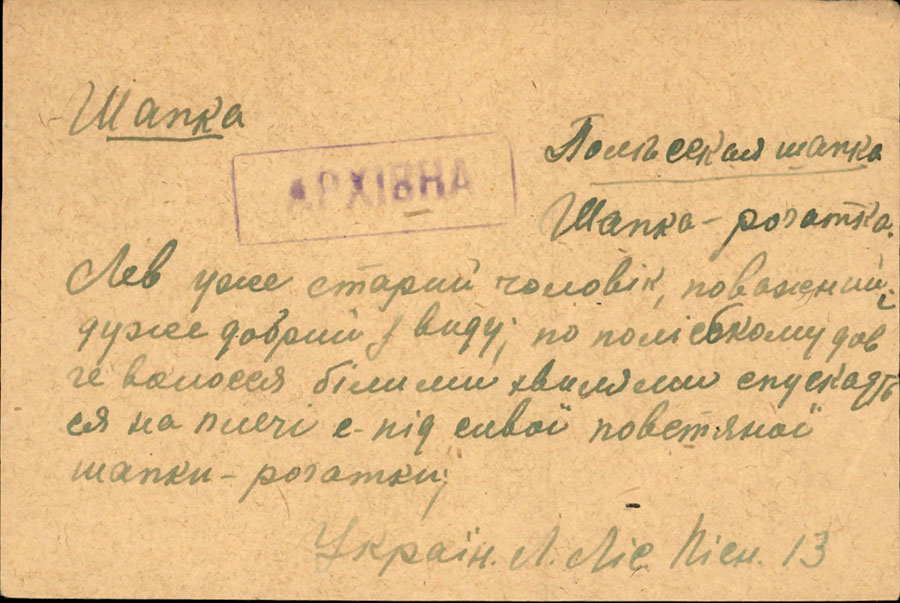 Шапка
АРХІВНА
Полѣсская шапка
Шапка-рогатка.
Лев уже старий чоловік, поважний,
дуже добрий з виду; по поліському дов
ге волосся білими хвилями спускаєть
ся на плечі с-під сивої повстяної
шапки-рогатки;
Україн. Л. Ліс. Пісн. 13